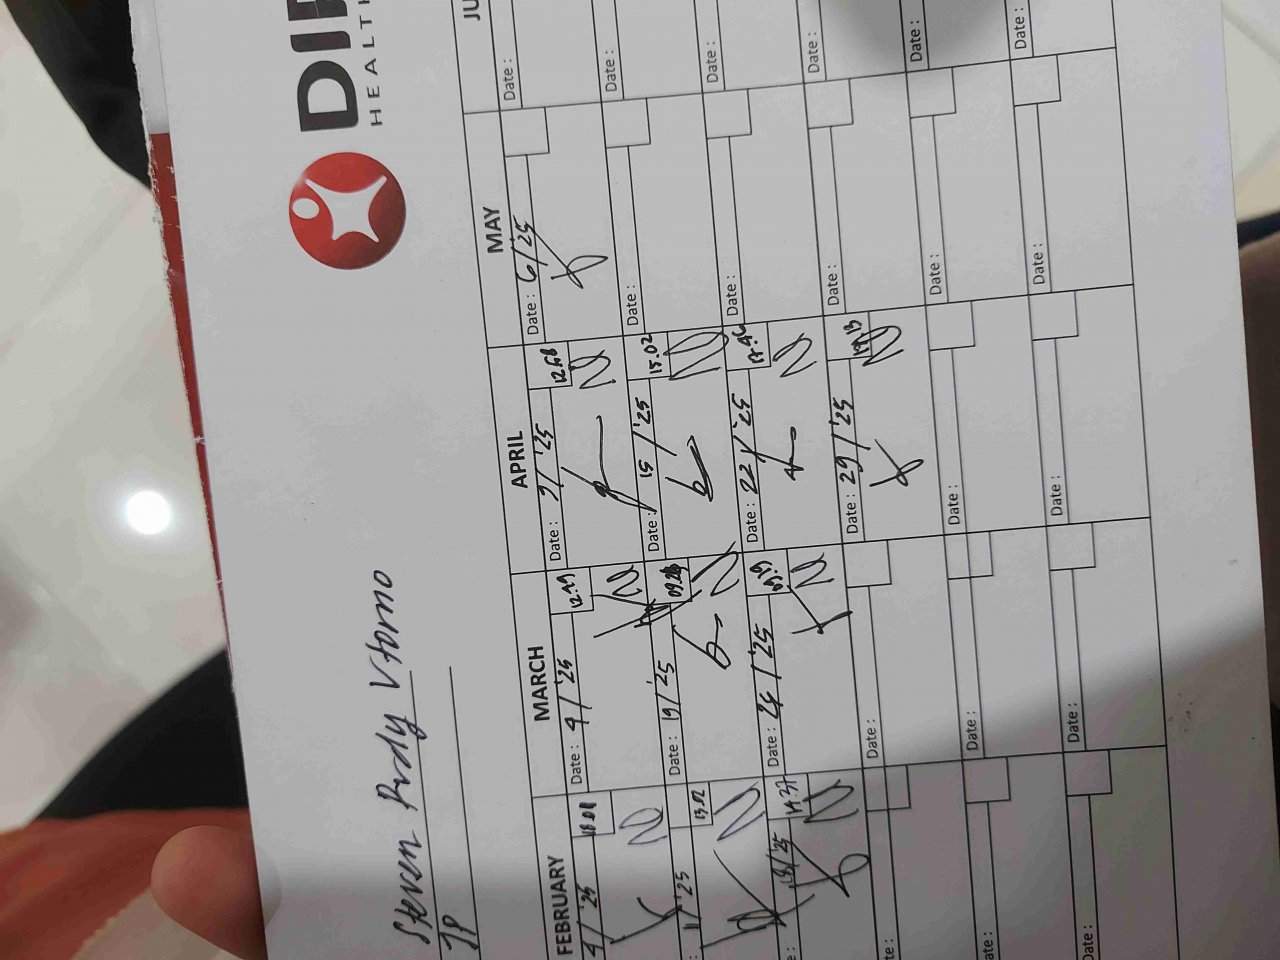 DIR
HEALTH
Steven Rudy Utomo
JP
FEBRUARY
MARCH
APRIL
MAY
JU
4/'25
Date: 4/'25 12.49
Date: '25
Date: 6/'25
Date:
11/'25 13.02
Date: 19/'25
Date: 15/'25 15.02
Date:
Date:
18/'25 14.37
Date: 25/'25
Date: 22/'25 17.46
Date:
Date:
Date:
Date: 29/'25
Date:
Date:
Date:
Date:
Date:
Date:
Date:
Date:
Date:
Date: